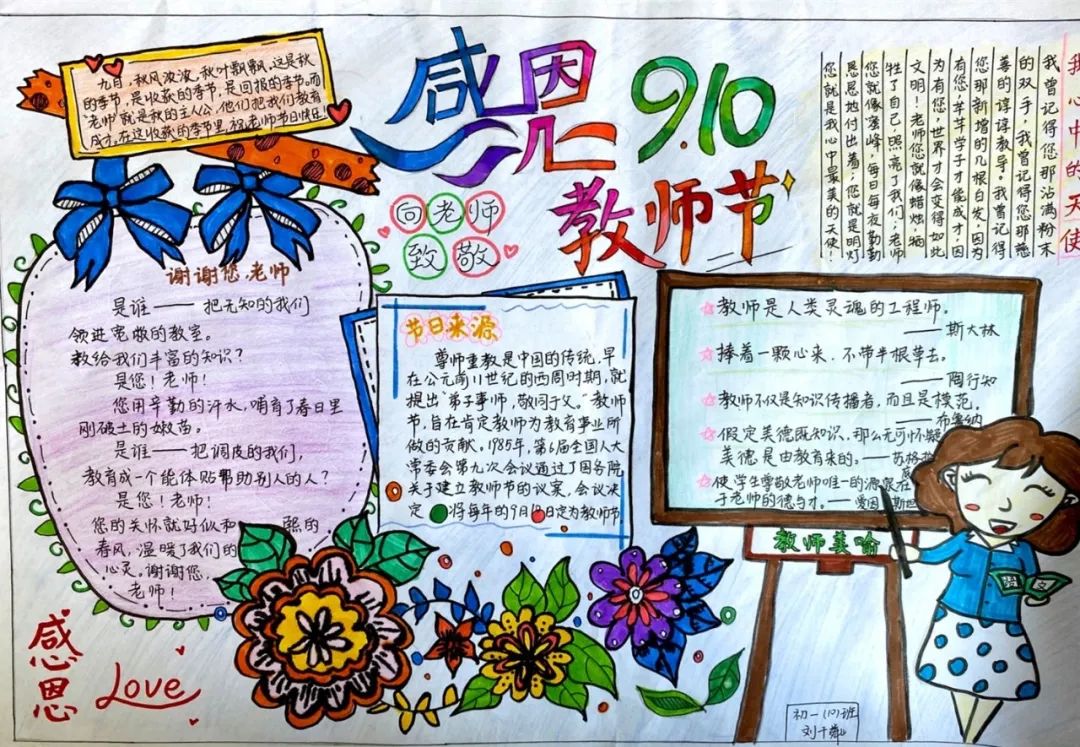 九月，秋风浓浓，秋叶飘飘，这是秋
的季节，是收获的季节，是回报的季节，而
"老师"就是秋的主人公，他们把我们教育
成才。在这收获的季节里，祝老师节日快乐！
感恩
9.10
教师节
向老师
致敬
我心中的天使
我曾记得您那沾满粉末
的双手，我曾记得您那慈
善的谆谆教导，我曾记得
您那新增的几根白发，因为
有您，莘莘学子才能成才，因
为有您，世界才会变得如此
文明！老师您就像蜡烛，牺
牲了自己，照亮了我们；老师
您就像蜜峰，每日每夜勤勤
恳恳地付出着；您就是明灯
您就是我心中最美的天使！
谢谢您，老师
是谁——把无知的我们
领进宽敞的教室。
教给我们丰富的知识？
是您！老师！
您用辛勤的汗水，哺育了春日里
刚破土的嫩苗。
是谁——把调皮的我们，
教育成一个能体贴帮助别人的人？
是您！老师！
您的关怀就好似和 熙的
春风，温暖了我们的
心灵。谢谢您，
老师！
节日来源
尊师重教是中国的传统，早
在公元前11世纪的西周时期，就
提出"弟子事师，敬同于父。"教师
节，自在肯定教师为教育事业所
做的贡献。1985年，第6届全国人大
常委会第九次会议通过了国务院
关于建立教师节的议案，会议决
定 将每年的9月10日定为教师节
教师是人类灵魂的工程师。
——斯大林
捧着一颗心来，不带半根草去。
——陶行知
教师不仅是知识传播者，而且是模范。
——布鲁纳
假定美德既知识，那么无可怀疑
美德是由教育来的。——苏格
使学生尊敬老师唯一的源泉在
于老师的德与才。——爱因斯坦
教师美喻
感恩
Love
初一(10)班